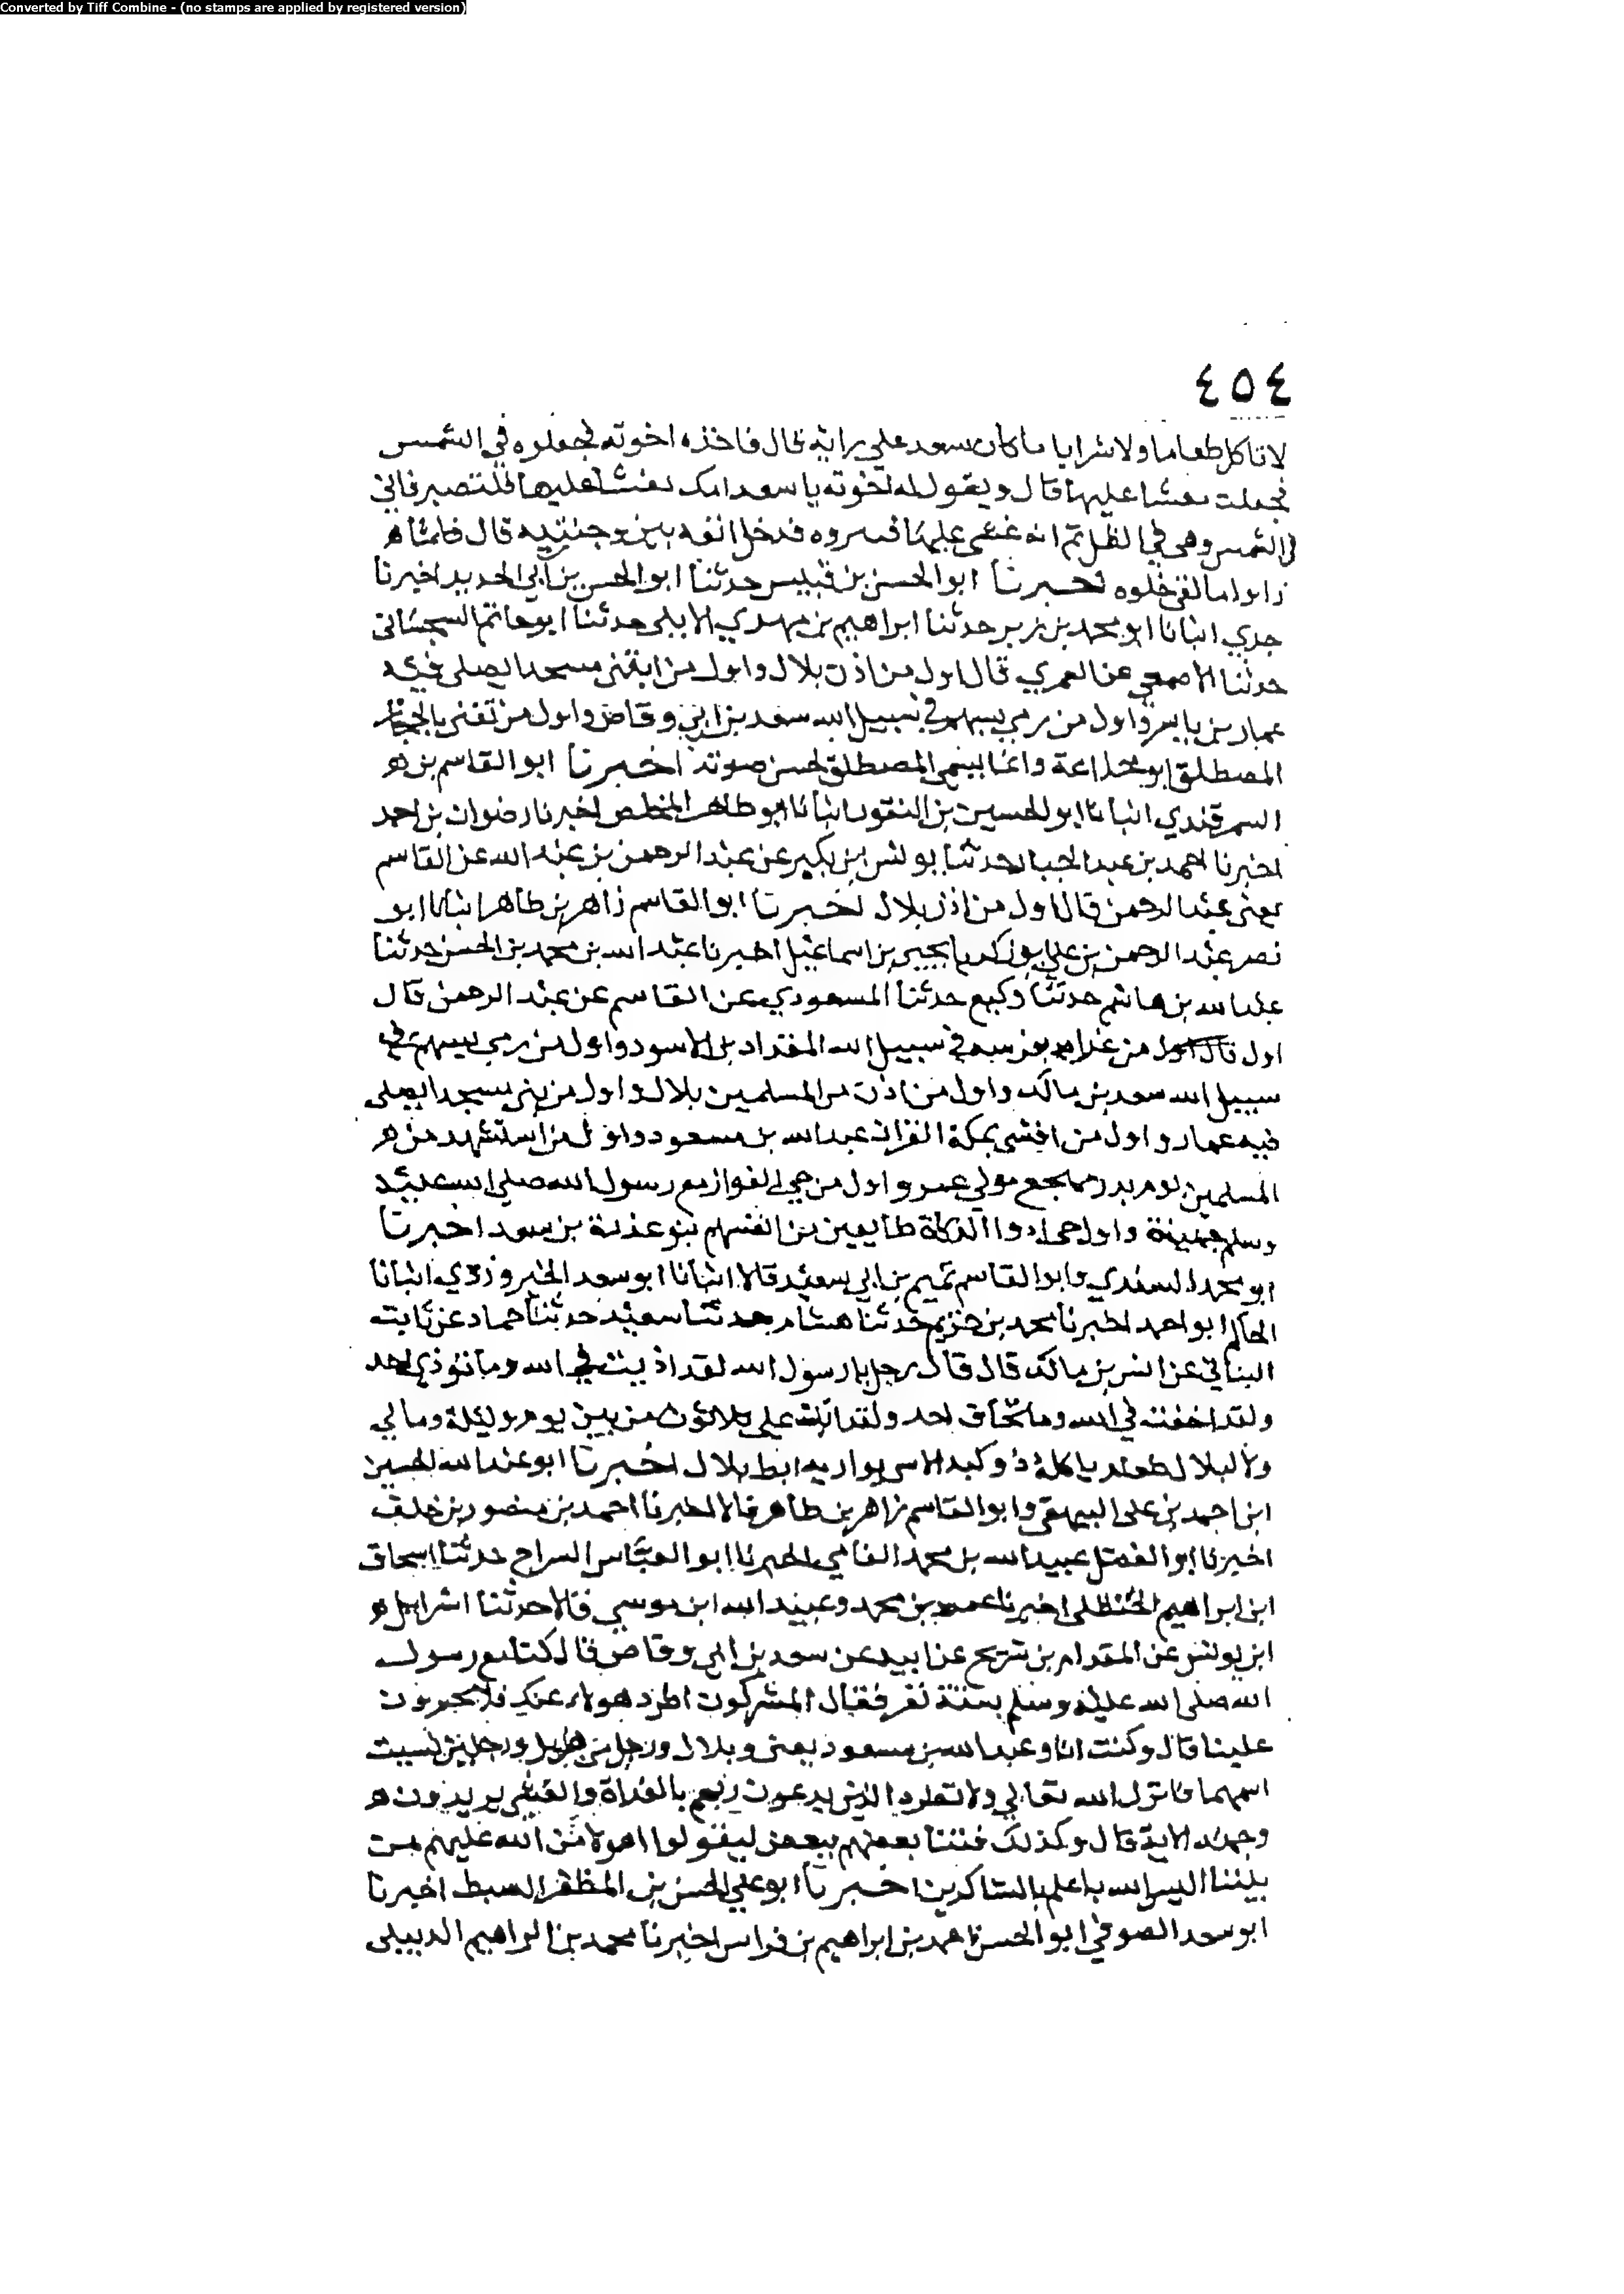 Converted by Tiff Combine - (no stamps are applied by registered version)
٤٥٤
لا تاكل طعاما ولا شرابا ما كان سعد على رايه قال فاخذه اخوته فجعلوه في الشمس
فجعلت عليها قال ويقول له اخوته يا سعد امك عليها فلتصبر فاني
في الشمس وهي في الظل ثم انه غشي عليها فدخل انفه بين وجنتيه قال فلما
خلوه اخبرنا ابو الحسن بن قبيس حدثنا ابو الحسن بن ابي الحديد اخبرنا
جدي انبانا ابو محمد بن زبر حدثنا ابراهيم بن مهدي الابلي حدثنا ابو حاتم السجستاني
حدثنا الاصمعي عن العمري قال اول من اذن بلال واول من ابتنى مسجدا يصلى فيه
عمار بن ياسر واول من رمي بسهم في سبيل الله سعد بن ابي وقاص واول من تغنى بالحجاز
المصطلق ابو خداعة وانما سمي المصطلق لحسن صوته اخبرنا ابو القاسم بن
السمرقندي انبانا ابو الحسين بن النقور انبانا ابو طاهر المخلص اخبرنا رضوان بن احمد
اخبرنا احمد بن عبد الجبار حدثنا يونس بن بكير عن عبد الرحمن بن عبد الله عن القاسم
يعني عبد الرحمن قال اول من اذن بلال اخبرنا ابو القاسم زاهر بن طاهر انبانا ابو
نصر عبد الرحمن بن علي ابو زكريا يحيى بن اسماعيل اخبرنا عبد الله بن محمد بن الحسن حدثنا
عبد الله بن هاشم حدثنا وكيع حدثنا المسعودي عن القاسم عن عبد الرحمن قال
اول من عدا به فرسه في سبيل الله المقداد بن الاسود واول من رمي بسهم في
سبيل الله سعد بن مالك واول من اذن من المسلمين بلال واول من بنى مسجدا يصلى
فيه عمار واول من افشى بمكة القران عبد الله بن مسعود واول من استشهد من
المسلمين يوم بدر مهجع مولى عمر واول من مع رسول الله صلى الله عليه
وسلم جهينة واول حي ادوا الزكاة طايعين من انفسهم بنو عذرة بن سعد اخبرنا
ابو محمد السندي وابو القاسم تميم بن ابي سعيد قالا انبانا ابو سعد الخيروزدي انبانا
الحاكم ابو احمد اخبرنا محمد بن خزيم حدثنا هشام حدثنا سعيد حدثنا حماد عن ثابت
البناني عن انس بن مالك قال قال رجل يا رسول الله لقد اذيت في الله وما نؤذي احد
ولقد اخفت في الله وما تخاف احد ولقد اتت علي ثلاثون من بين يوم وليلة وما لي
ولا لبلال طعام ياكله ذو كبد الا شي يواريه ابط بلال اخبرنا ابو عبد الله الحسين
ابن احمد بن علي البيهقي وابو القاسم زاهر بن طاهر قالا اخبرنا احمد بن منصور بن خلف
اخبرنا ابو الفضل عبيد الله بن محمد الفامي اخبرنا ابو العباس السراج حدثنا اسحاق
ابن ابراهيم الحنظلي اخبرنا عمرو بن محمد وعبيد الله ابن موسى قالا حدثنا اسرايل
ابن يونس عن المقدام بن شريح عن ابيه عن سعد بن ابي وقاص قال كنا مع رسول
الله صلى الله عليه وسلم بستة نفر فقال المشركون اطرد هولاء عنك فلا يجترون
علينا قال وكنت انا وعبد الله بن مسعود يعني وبلال ورجل من هذيل ورجلين نسيت
اسمهما فانزل الله تعالى ولا تطرد الذين يدعون ربهم بالغداة والعشي يريدون
وجهه الاية قال وكذلك فتنا بعضهم ببعض ليقولوا اهولا من الله عليهم من
بيننا اليس الله باعلم بالشاكرين اخبرنا ابو علي الحسن بن المظفر السبط اخبرنا
ابو سعد الصوفي ابو الحسن احمد بن ابراهيم بن فراس اخبرنا محمد بن ابراهيم الديبلي